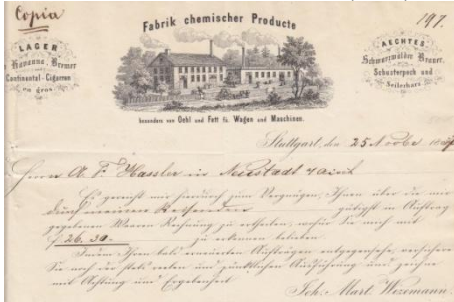 Copia
197.
Fabrik chemischer Producte
LAGER
Havanna, Bremer
Continental-Cigarren
en gros.
AECHTES
Schwarzwälder Brauer,
Schusterpech und
Seilerharz.
besonders von Oehl und Fett fü. Wagen und Maschinen.
Stuttgart, den 25 Novbr
Herrn A. F. Hassler in Neustadt
Es gereicht mir hierdurch zum Vergnügen, Ihnen über die mir
durch meinen Reisenden gütigst in Auftrag
gegebenen Waaren Rechnung zu ertheilen, wofür Sie mich mit
f 26. 30 zu erkennen belieben
Indem Ihren Aufträgen entgegensehe, versichere
Sie noch der stets reellen und pünktlichen Ausführung und zeichne
mit Achtung und Ergebenheit
Joh. Mart. Wezemann.